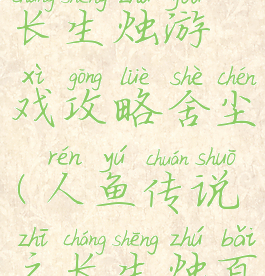 cháng shēng zhú yóu
长生烛游
xì gōng lüè shè chén
戏攻略舍尘
rén yú chuán shuō
(人鱼传说
zhī cháng shēng zhú bǎi
之长生烛百